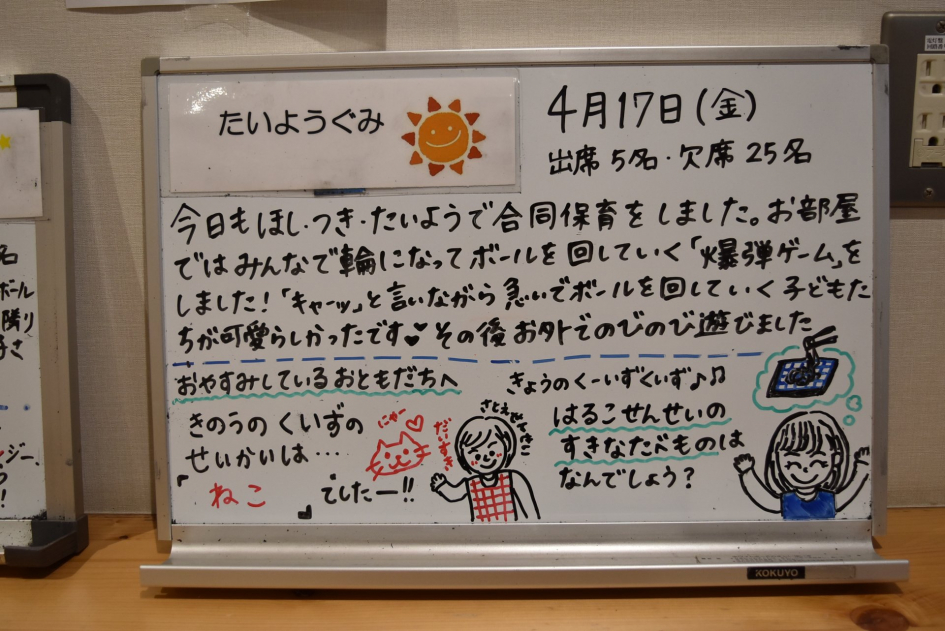 たいようぐみ
4月17日(金)
出席5名・欠席25名
今日もほし・つき・たいようで合同保育をしました。お部屋
ではみんなで輪になってボールを回していく「爆弾ゲーム」を
しました!「キャーッ」と言いながら急いでボールを回していく子どもた
ちが可愛らしかったです♥その後お外でのびのび遊びました
おやすみしているおともだちへ
きのうのくいずの
せいかいは…
「ねこ」でしたー!!
にゃー
だいすき
きょうのくーいずくいず♪♫
はるこせんせいの
すきなたべものは
なんでしょう?
KOKUYO
名
ボール
隣り